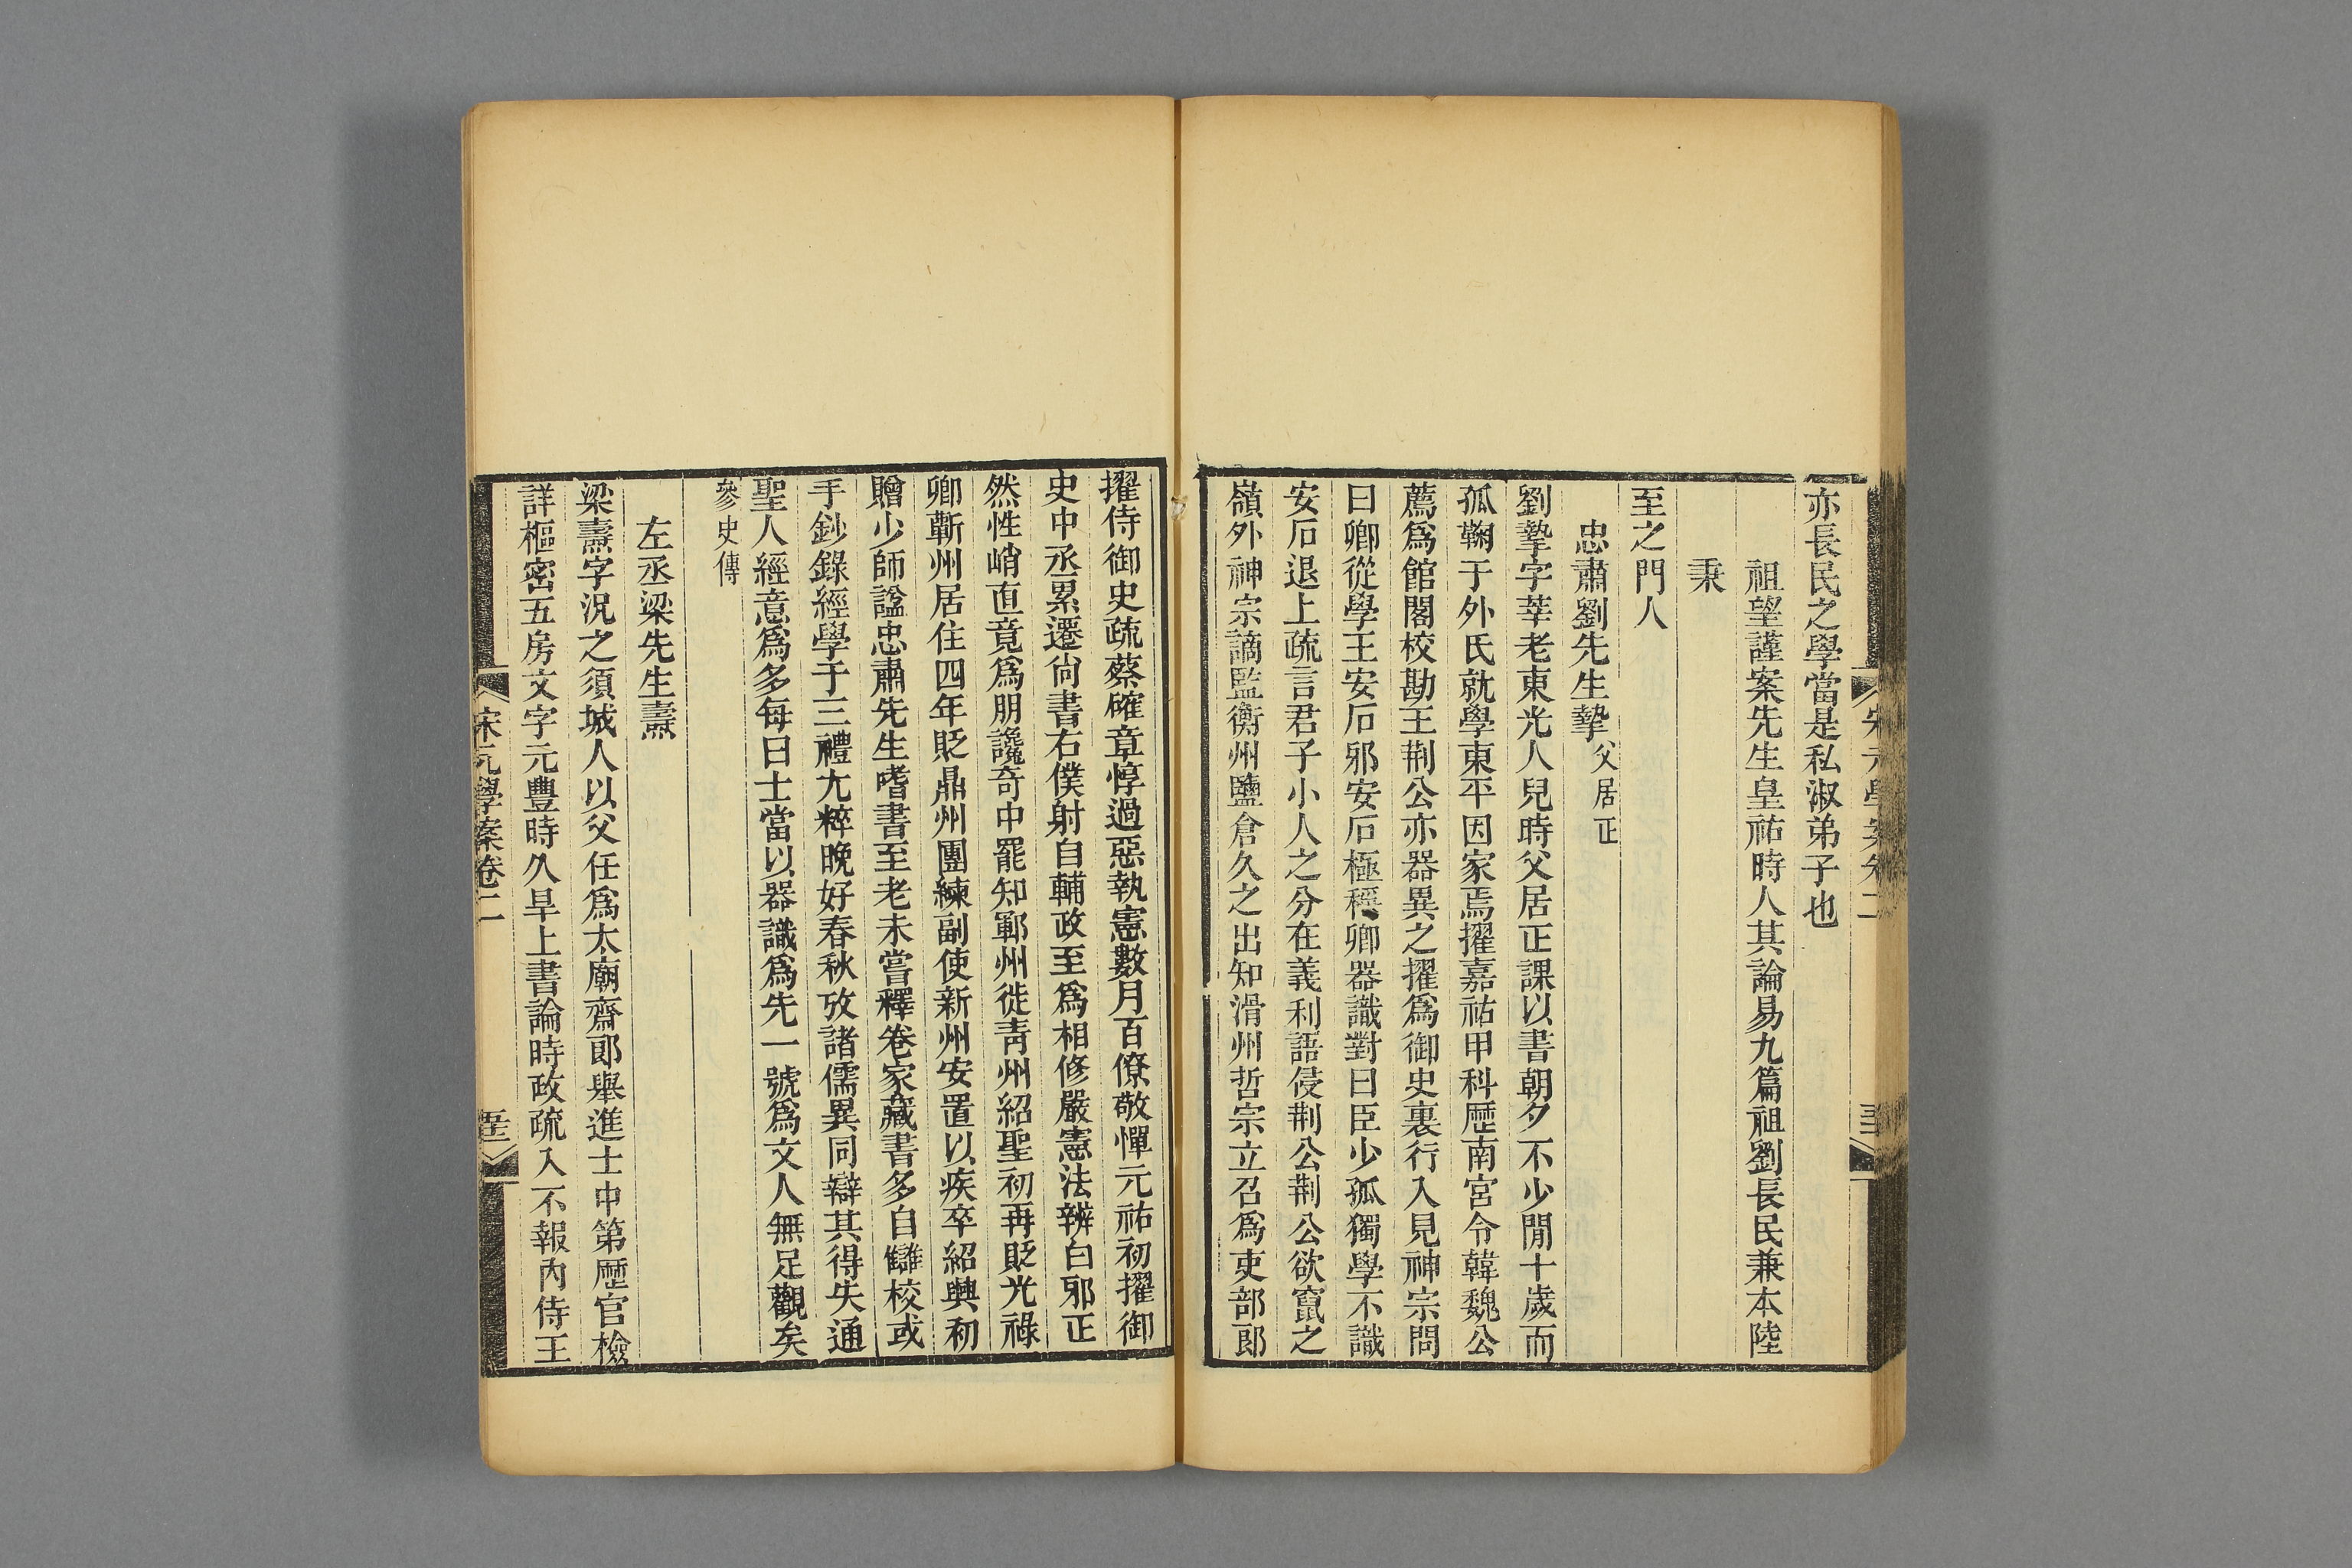 亦長民之學當是私淑弟子也
祖望謹案先生皇祐時人其論易九篇祖劉長民兼本陸
秉
至之門人
忠肅劉先生摯父居正
劉摯字莘老東光人兒時父居正課以書朝夕不少閒十歲而
孤鞠于外氏就學東平因家焉擢嘉祐甲科歷南宮令韓魏公
薦爲館閣校勘王荆公亦器異之擢爲御史裏行入見神宗問
曰卿從學王安石邪安石極稱卿器識對曰臣少孤獨學不識
安石退上疏言君子小人之分在義利語侵荆公荆公欲竄之
嶺外神宗謫監衡州鹽倉久之出知滑州哲宗立召爲吏部郎
擢侍御史疏蔡確章惇過惡執憲數月百僚敬憚元祐初擢御
史中丞累遷尙書右僕射自輔政至爲相修嚴憲法辨白邪正
然性峭直竟爲朋讒奇中罷知鄆州徙青州紹聖初再貶光祿
卿蘄州居住四年貶鼎州團練副使新州安置以疾卒紹興初
贈少師諡忠肅先生嗜書至老未嘗釋卷家藏書多自讎校或
手鈔錄經學于三禮尤粹晚好春秋攷諸儒異同辯其得失通
聖人經意爲多每日士當以器識爲先一號爲文人無足觀矣
參史傳
左丞梁先生燾
梁燾字況之須城人以父任爲太廟齋郎舉進士中第歷官檢
詳樞密五房文字元豐時久旱上書論時政疏入不報內侍王
宋元學案卷二